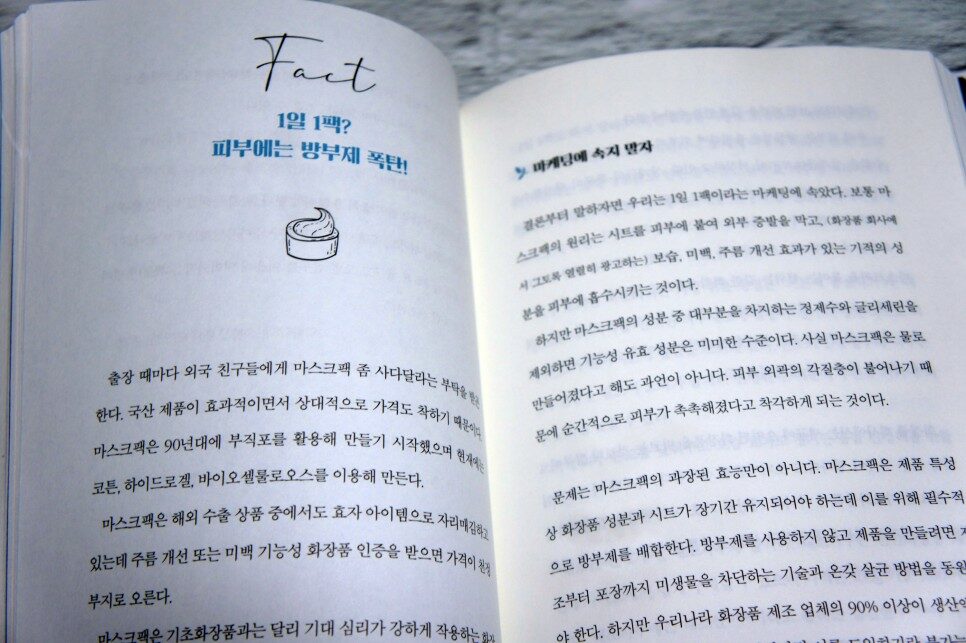 Fact
1일 1팩?
피부에는 방부제 폭탄!
출장 때마다 외국 친구들에게 마스크팩 좀 사다달라는 부탁을 받곤
한다. 국산 제품이 효과적이면서 상대적으로 가격도 착하기 때문이다.
마스크팩은 90년대에 부직포를 활용해 만들기 시작했으며 현재에는
코튼, 하이드로겔, 바이오셀룰로오스를 이용해 만든다.
마스크팩은 해외 수출 상품 중에서도 효자 아이템으로 자리매김하고
있는데 주름 개선 또는 미백 기능성 화장품 인증을 받으면 가격이 천정
부지로 오른다.
마스크팩은 기초화장품과는 달리 기대 심리가 강하게 작용하는 화장
마케팅에 속지 말자
결론부터 말하자면 우리는 1일 1팩이라는 마케팅에 속았다. 보통 마
스크팩의 원리는 시트를 피부에 붙여 외부 증발을 막고, (화장품 회사에
서 그토록 열렬히 광고하는) 보습, 미백, 주름 개선 효과가 있는 기적의 성
분을 피부에 흡수시키는 것이다.
하지만 마스크팩의 성분 중 대부분을 차지하는 정제수와 글리세린을
제외하면 기능성 유효 성분은 미미한 수준이다. 사실 마스크팩은 물로
만들어졌다고 해도 과언이 아니다. 피부 외곽의 각질층이 불어나기 때
문에 순간적으로 피부가 촉촉해졌다고 착각하게 되는 것이다.
문제는 마스크팩의 과장된 효능만이 아니다. 마스크팩은 제품 특성
상 화장품 성분과 시트가 장기간 유지되어야 하는데 이를 위해 필수적
으로 방부제를 배합한다. 방부제를 사용하지 않고 제품을 만들려면
조부터 포장까지 미생물을 차단하는 기술과 온갖 살균 방법을 동원
야 한다. 하지만 우리나라 화장품 제조 업체의 90% 이상이 생산